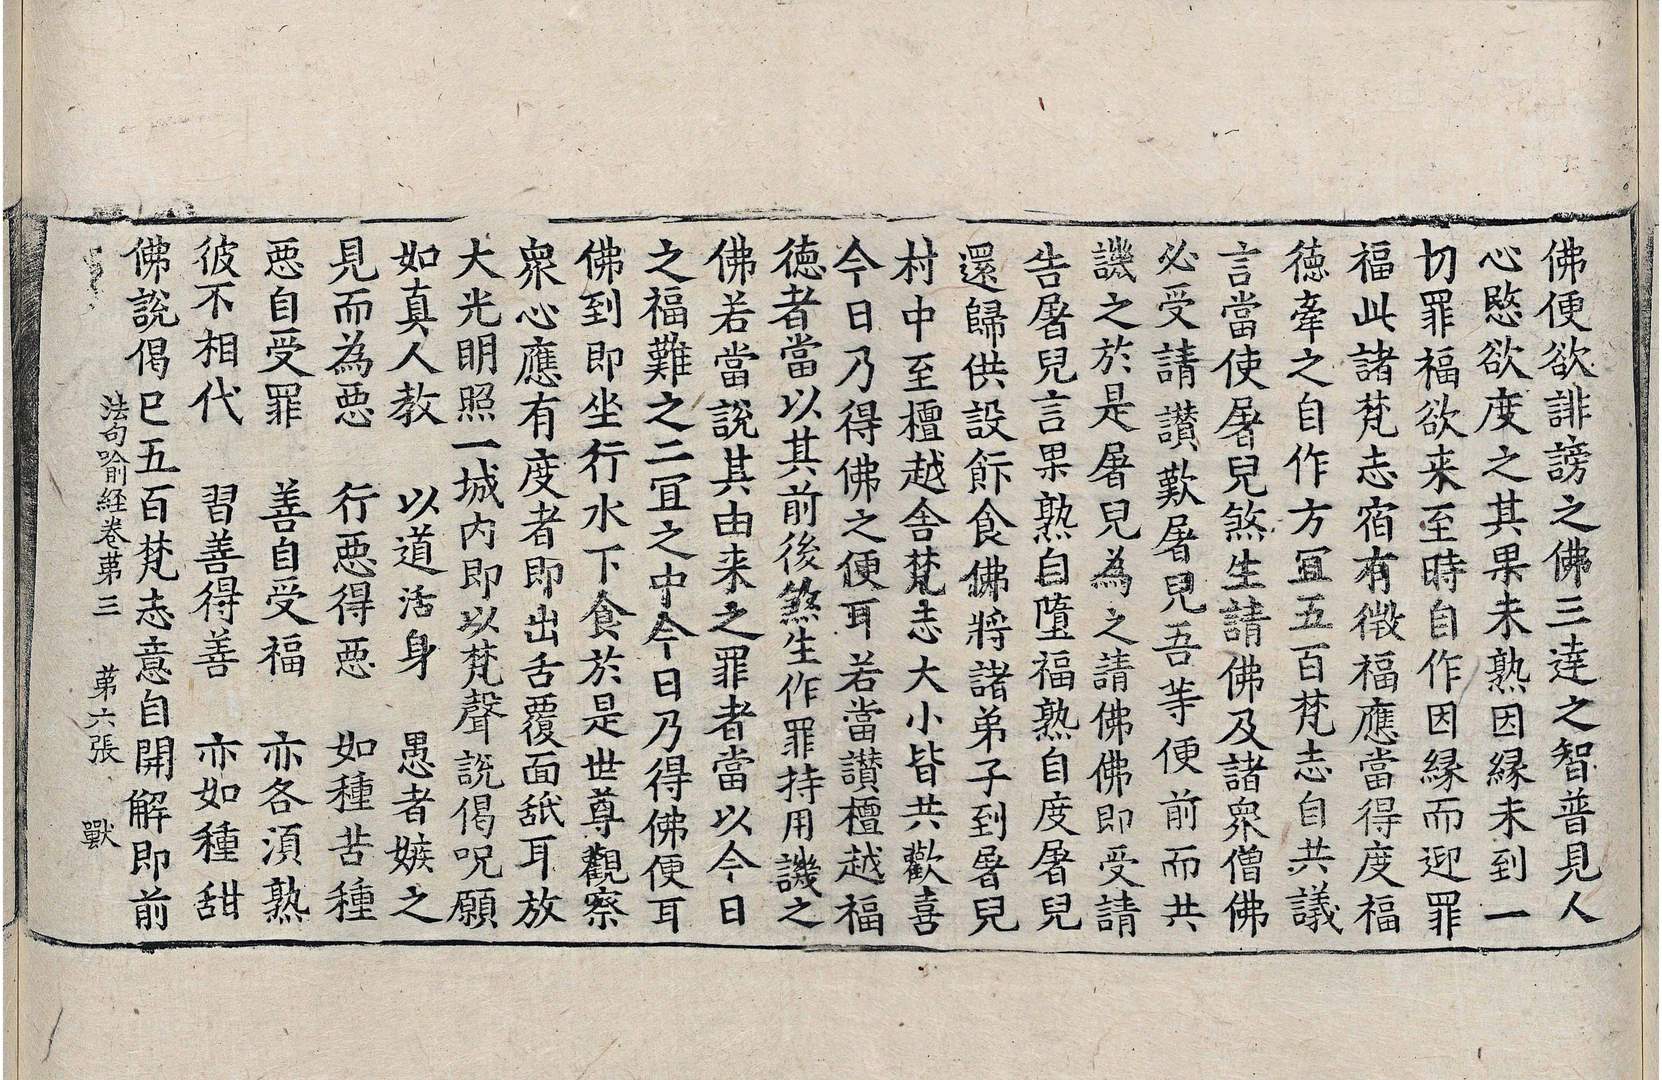 佛便欲誹謗之佛三達之智普見人
心愍欲度之其果未熟因縁未到一
切罪福欲来至時自作因縁而迎罪
福此諸梵志宿有徵福應當得度福
徳牽之自作方冝五百梵志自共議
言當使屠兒煞生請佛及諸衆僧佛
必受請讃歎屠兒吾等便前而共
譏之於是屠兒為之請佛佛即受請
告屠兒言果熟自墮福熟自度屠兒
還歸供設飰食佛將諸弟子到屠兒
村中至檀越舎梵志大小皆共歡喜
今日乃得佛之便耳若當讃檀越福
徳者當以其前後煞生作罪持用譏之
佛若當說其由来之罪者當以今日
之福難之二冝之中今日乃得佛便耳
佛到即坐行水下食於是世尊觀察
衆心應有度者即出舌覆面舐耳放
大光明照一城内即以梵聲說偈呪願
如真人教　以道活身　愚者嫉之
見而為惡　行惡得惡　如種苦種
惡自受罪　善自受福　亦各湏熟
彼不相代　習善得善　亦如種甜
佛說偈已五百梵志意自開解即前
法句喻経卷苐三　苐六張　獸